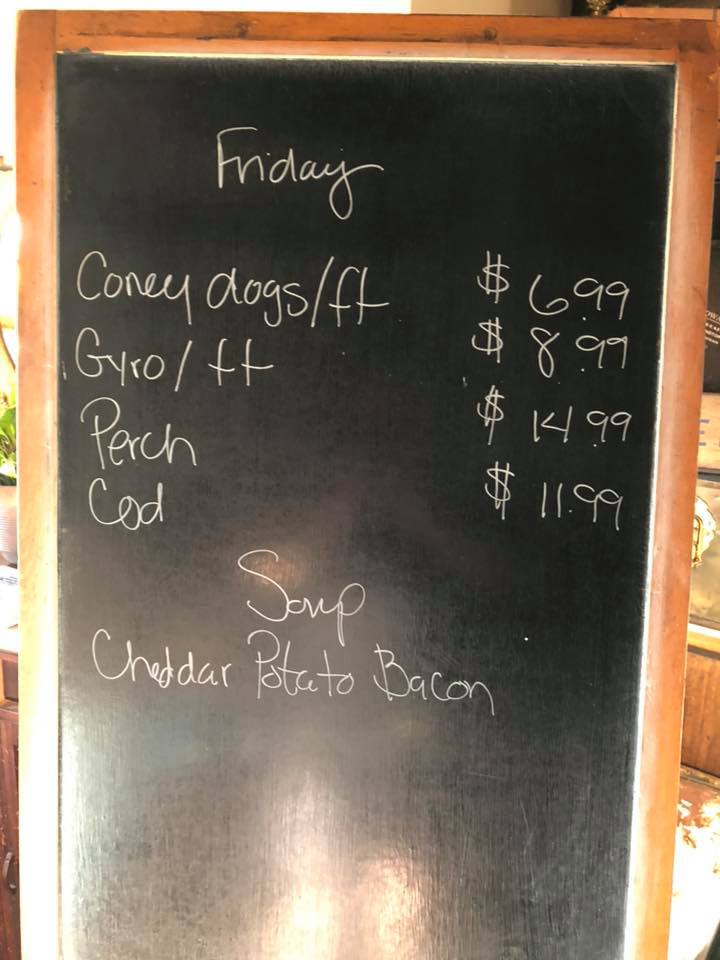 Friday
Coney dogs/ft $ 6.99
Gyro/ft $ 8.99
Perch $ 14.99
Cod $ 11.99
Soup
Cheddar Potato Bacon